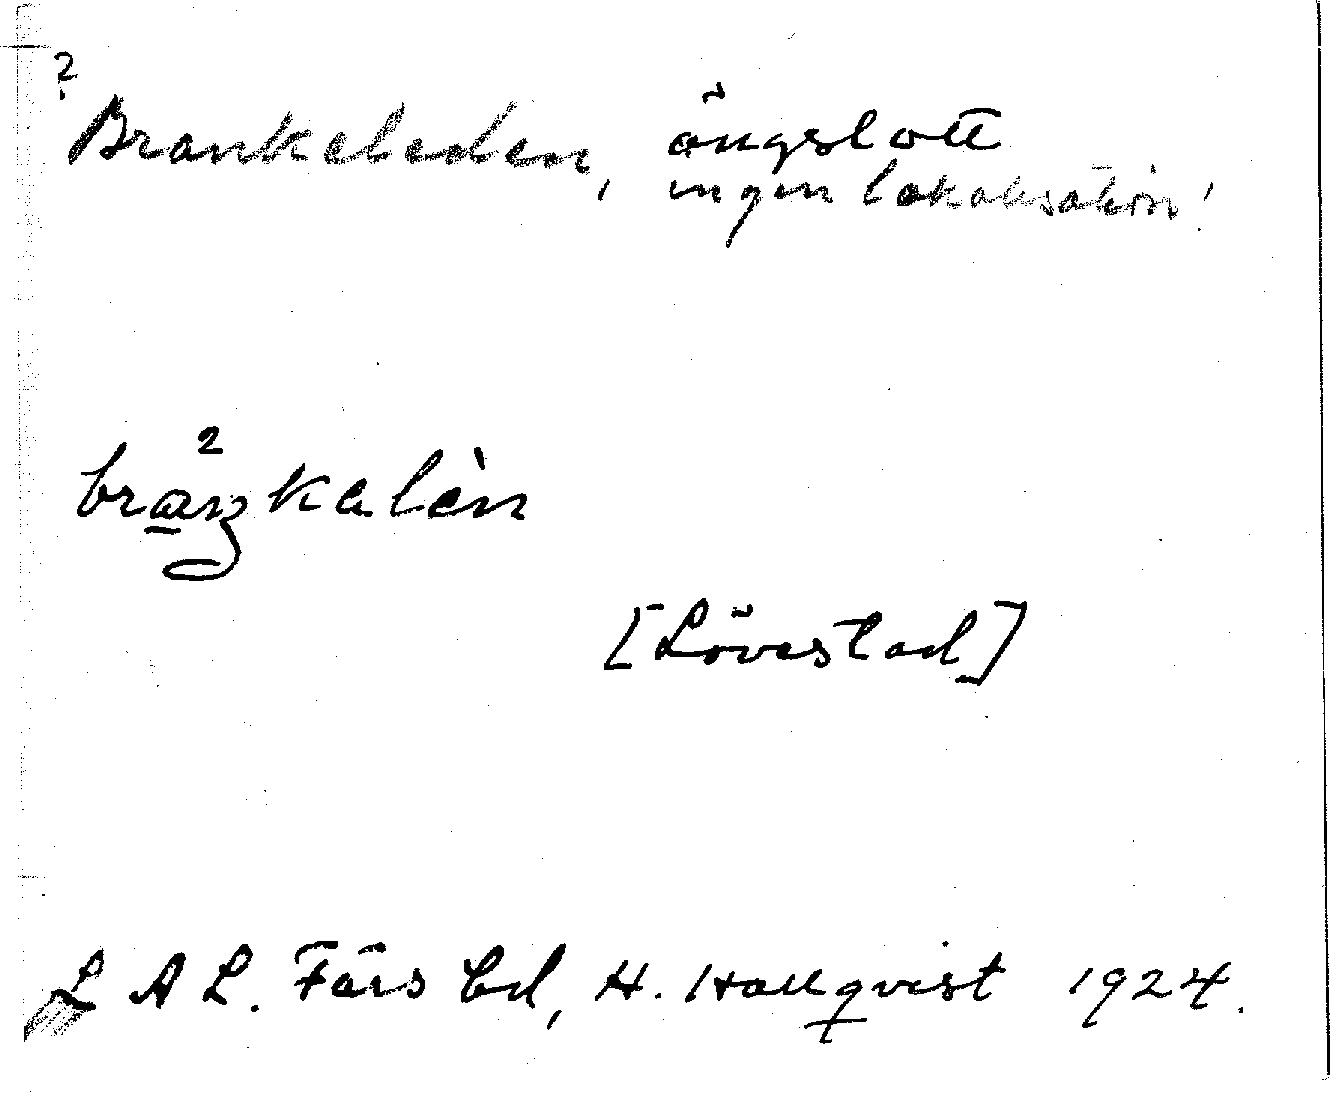 ?
Brankeleden, ängslott
ingen lokalisation!
brąŋ²kalèn
[Lövestad]
L A L. Färs hd, H. Hallqvist 1924.